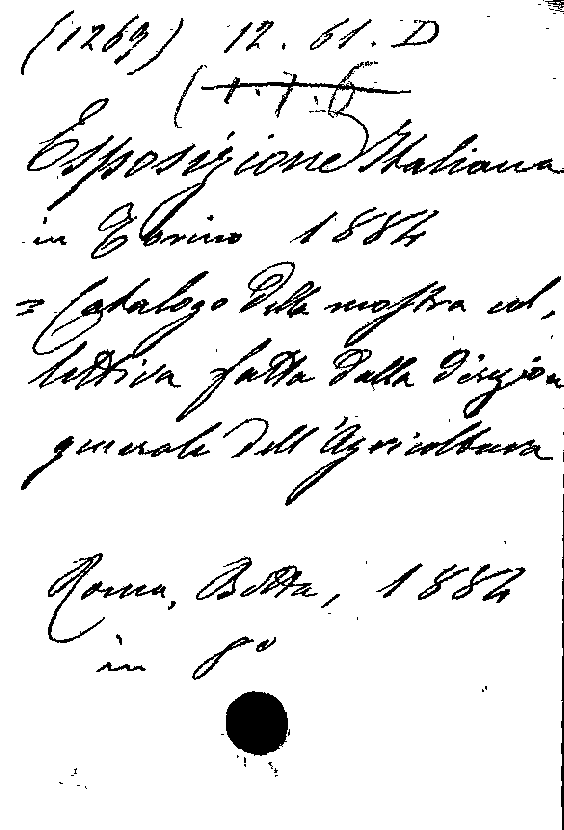 (1269) 12.61.D
(1.7.6
Esposizione Italiana
in Torino 1884
= Catalogo della mostra col,
lettiva fatta dalla Direzion
generale dell'Agricoltura
Roma, Botta, 1884
in 8°